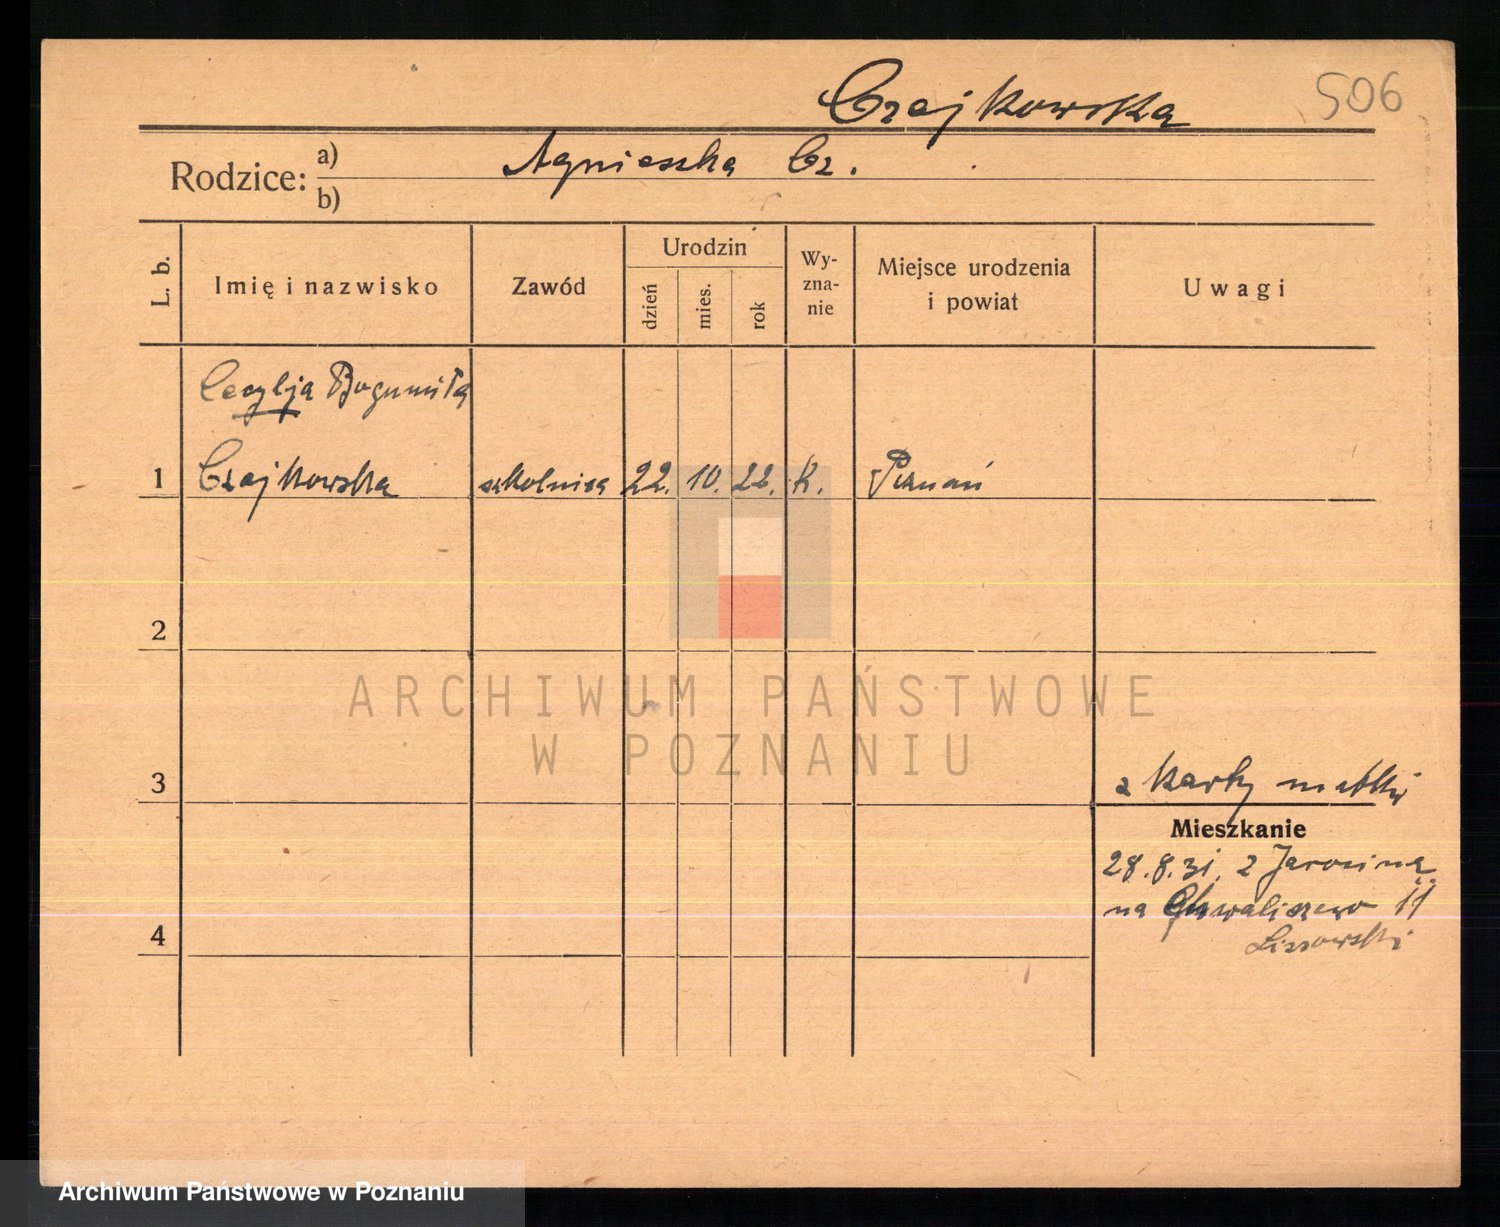 Czajkowska 506
Rodzice: a) Agnieszka Cz.
b)
L. b. Imię i nazwisko Zawód Urodzin dzień mies. rok Wy-zna-nie Miejsce urodzenia i powiat Uwagi
Cecylja Bogumiła
1 Czajkowska szkolnica 22. 10. 22. K. Poznań
2
ARCHIWUM PAŃSTWOWE
W POZNANIU
3 z karty matki
Mieszkanie
28.8.31. z Jarocina
na Chwaliszewo 11
4 Lissowski
Archiwum Państwowe w Poznaniu